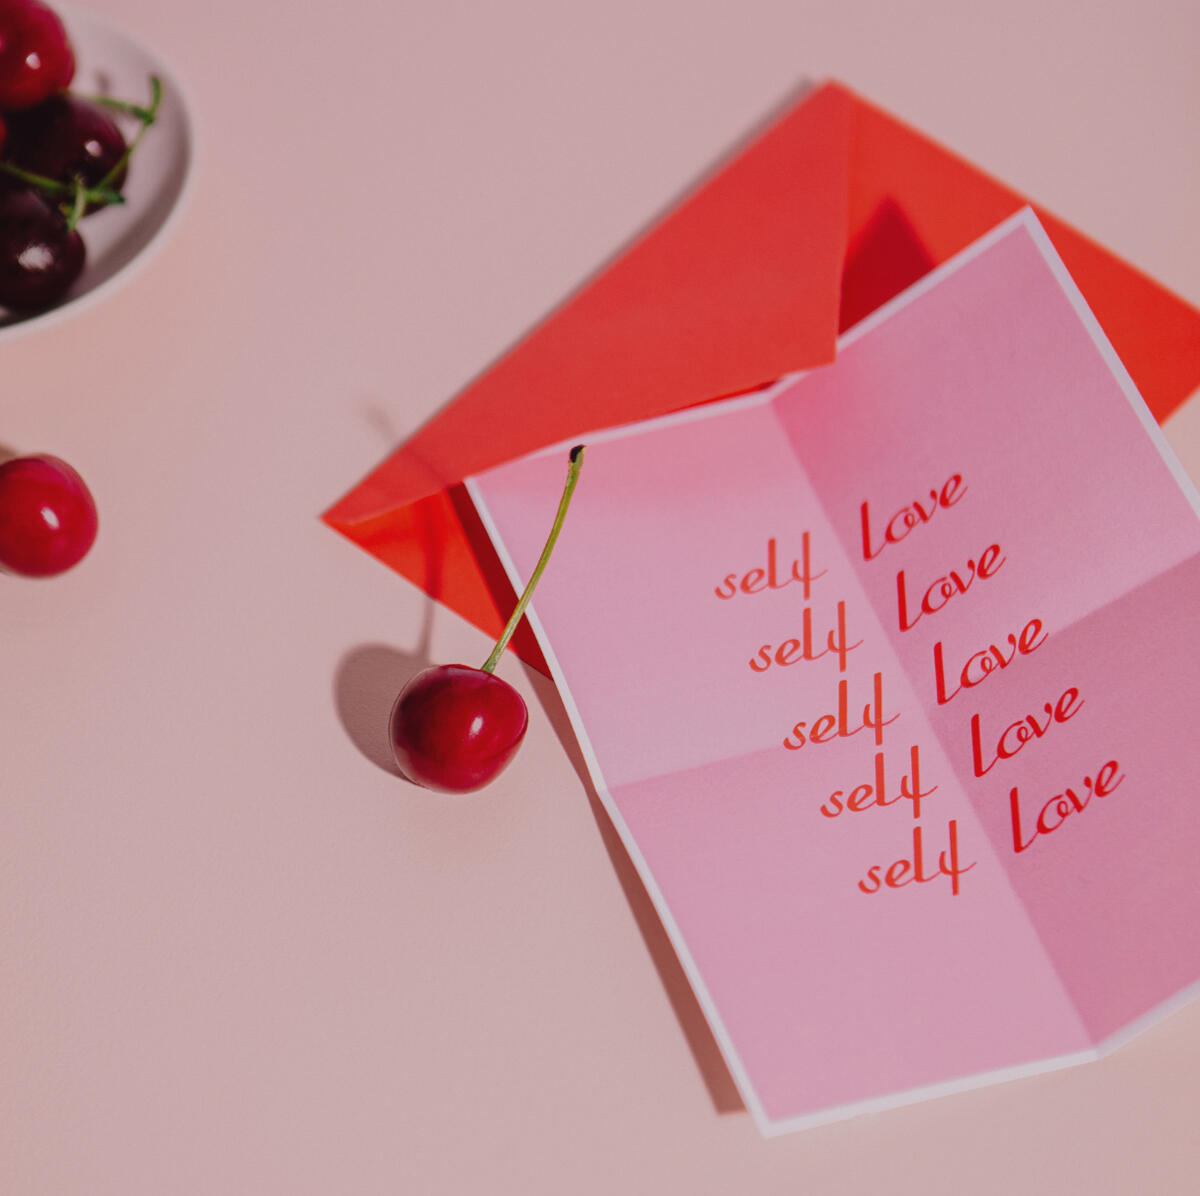 self love
self love
self love
self love
self love